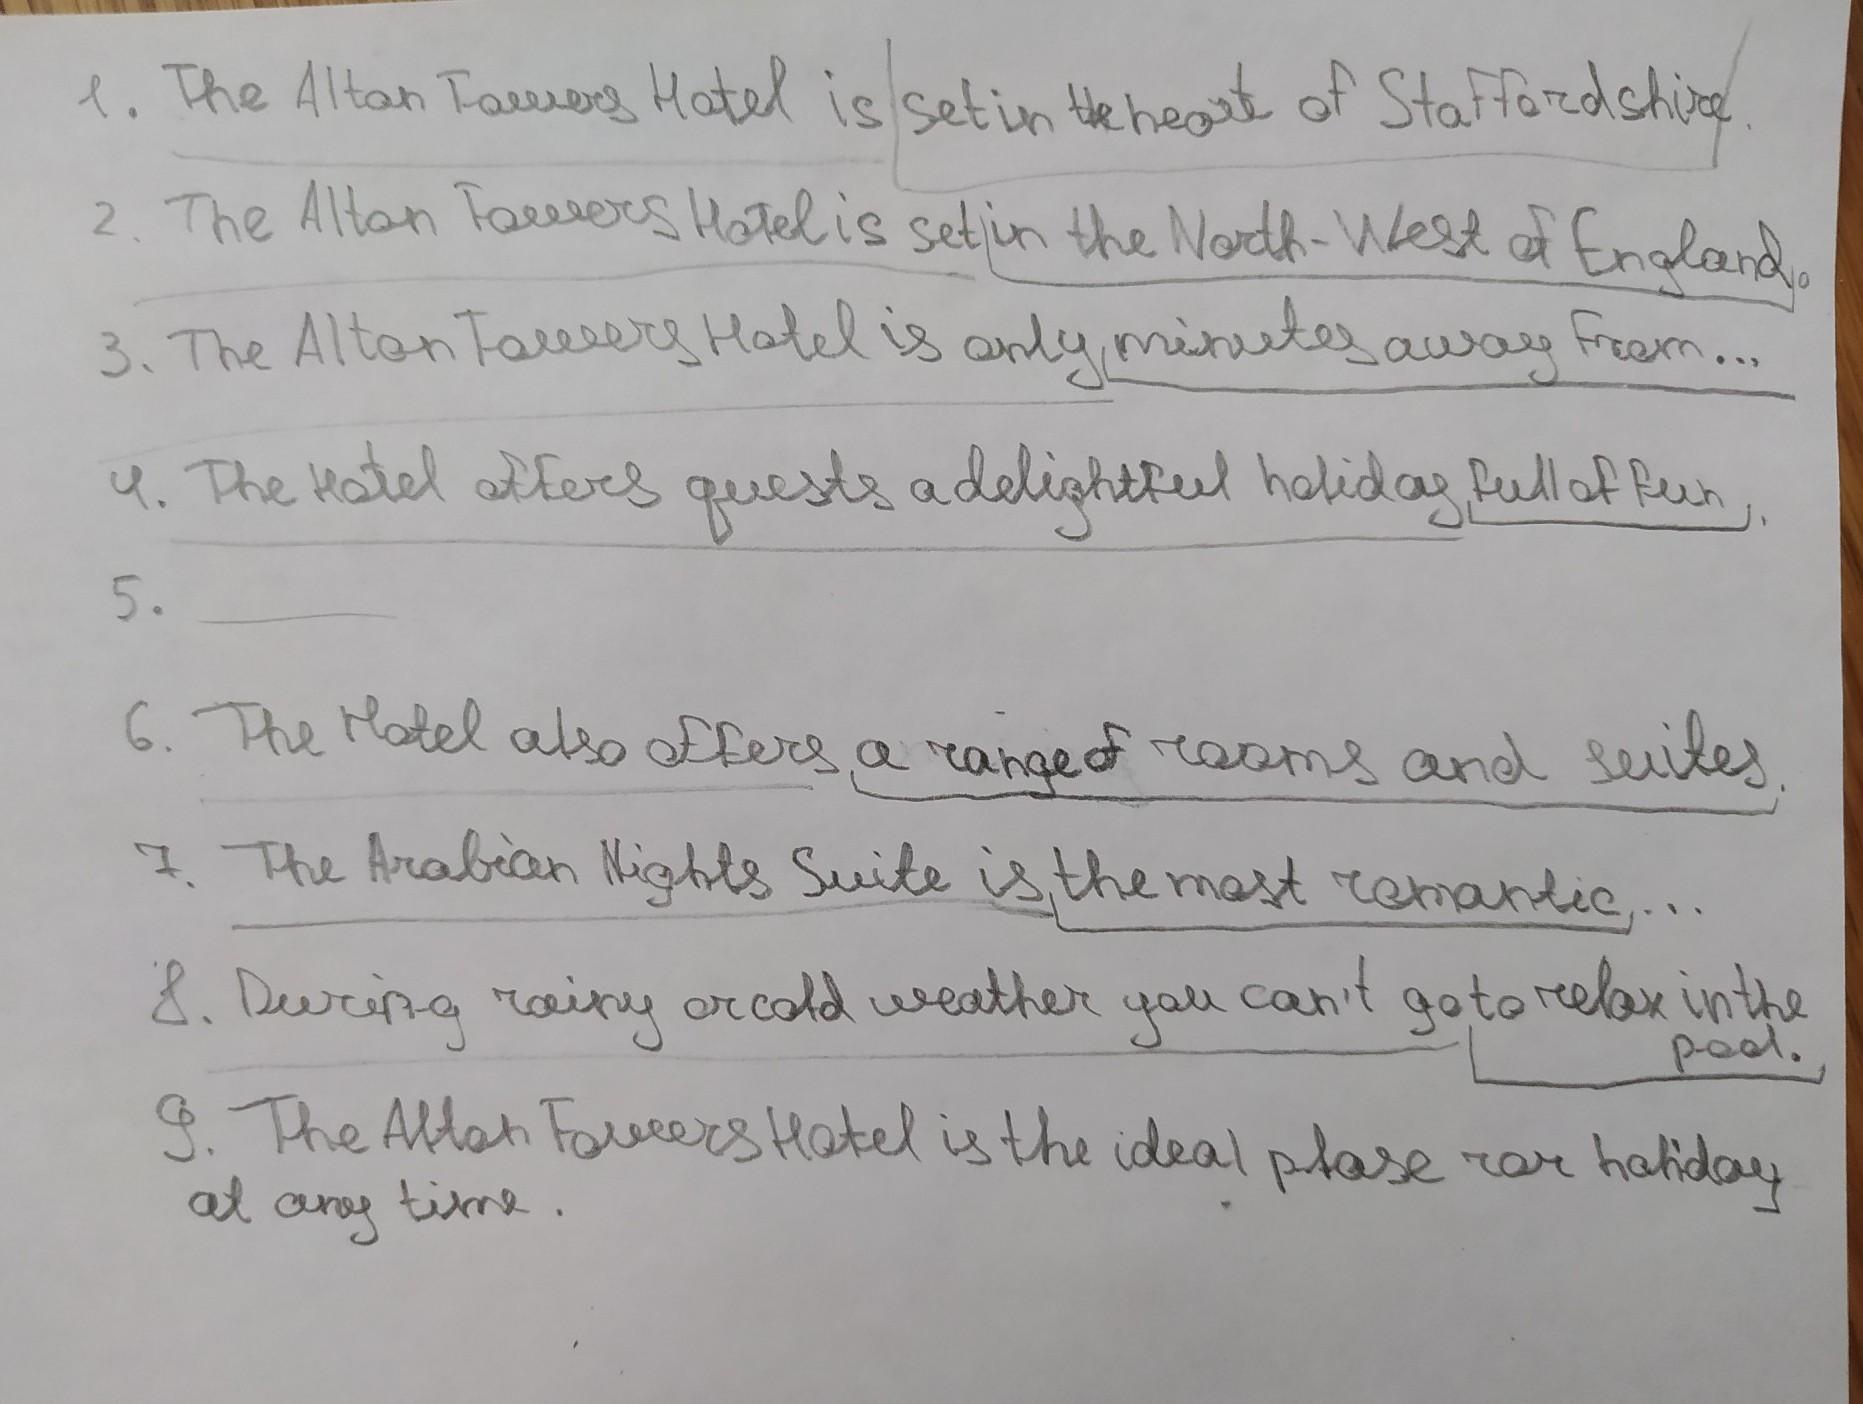 1. The Alton Towers Hotel is set in the heart of Staffordshire.
2. The Alton Towers Hotel is set in the North-West of England.
3. The Alton Towers Hotel is only minutes away from...
4. The Hotel offers quests a delightful holiday full of fun.
5.
6. The Hotel also offers a range of rooms and suites.
7. The Arabian Nights Suite is the most romantic...
8. During rainy or cold weather you can't go to relax in the
pool.
9. The Alton Towers Hotel is the ideal plase for holiday
at any time.